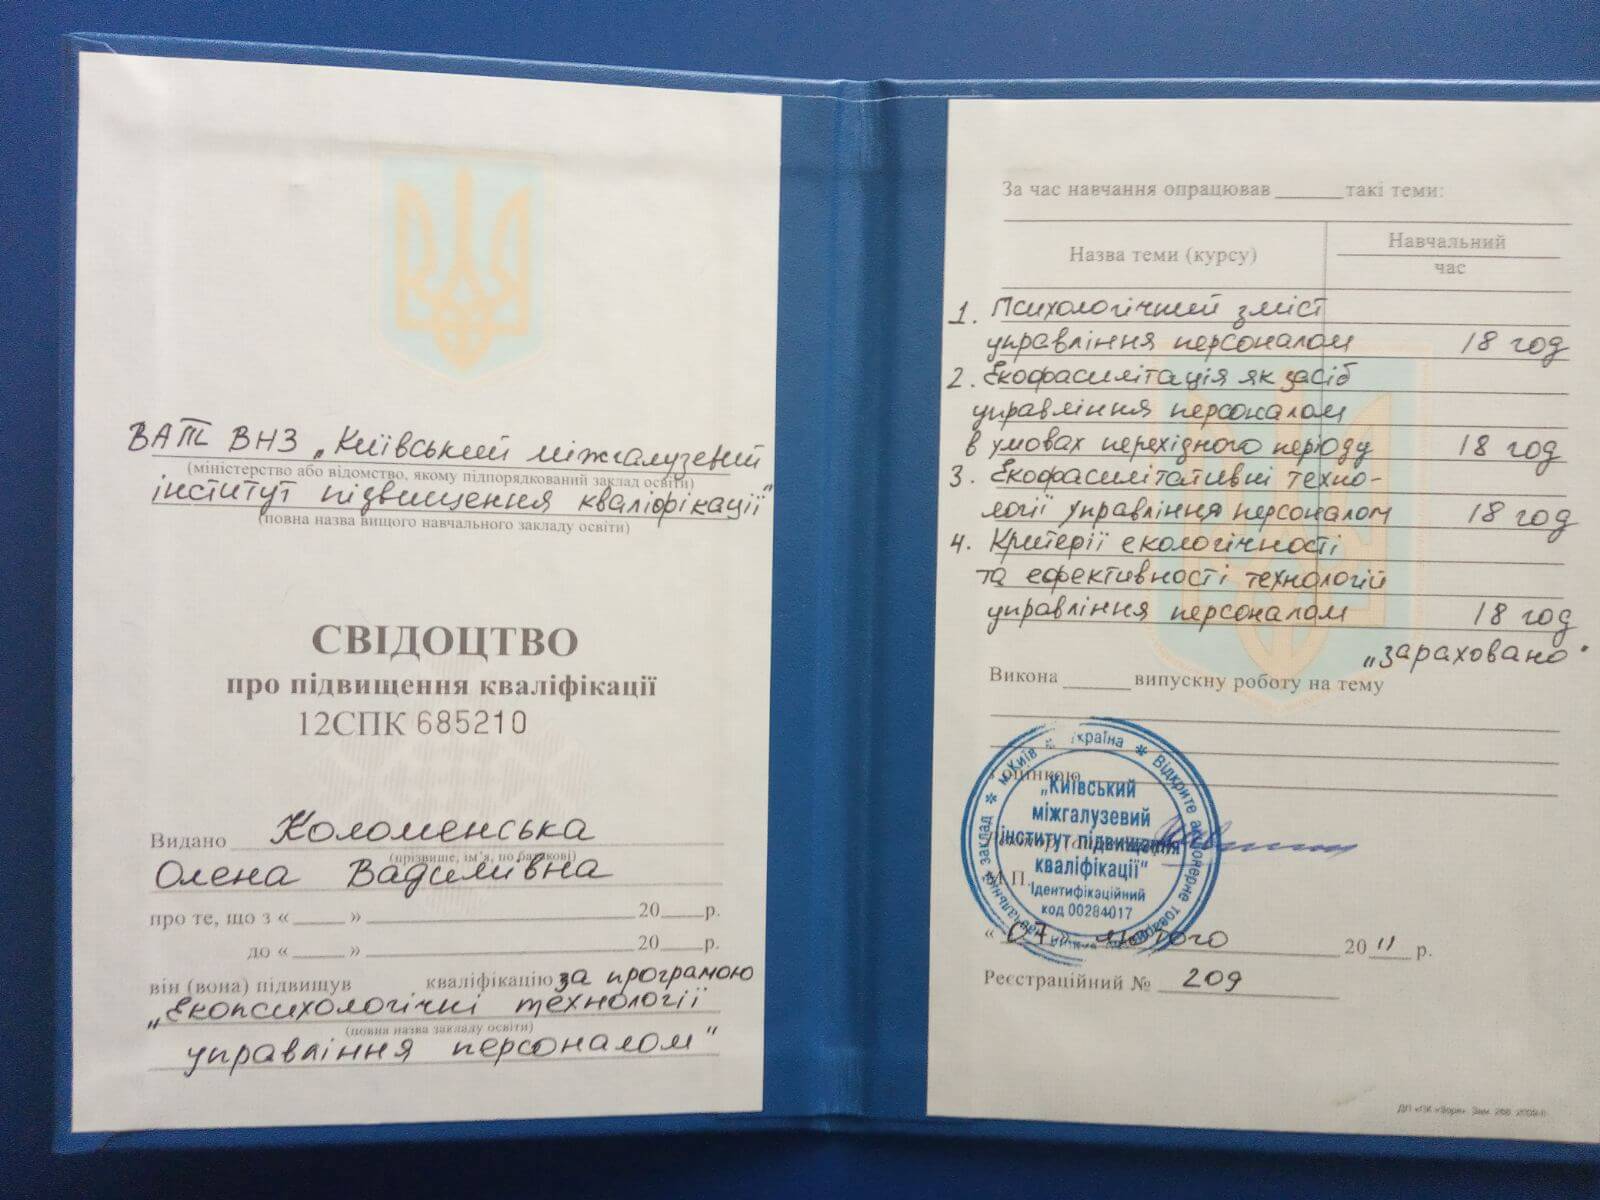 ВАТ ВНЗ „Київський міжгалузевий
(міністерство або відомство, якому підпорядкований заклад освіти)
інститут підвищення кваліфікації"
(повна назва вищого навчального закладу освіти)
СВІДОЦТВО
про підвищення кваліфікації
12СПК 685210
Видано Коломенська
(прізвище, ім'я, по батькові)
Олена Вадимівна
про те, що з «____» ____ 20___р.
до «____» ____ 20___р.
він (вона) підвищув кваліфікацію за програмою
„Екопсихологічні технології
(повна назва закладу освіти)
управління персоналом"
За час навчання опрацював ______ такі теми:
Назва теми (курсу)
Навчальний
час
1. Психологічний зміст
управління персоналом 18 год
2. Екофасилітація як засіб
управління персоналом
в умовах перехідного періоду 18 год
3. Екофасилітативні техно-
логії управління персоналом 18 год
4. Критерії екологічності
та ефективності технологій
управління персоналом 18 год
„зараховано"
Викона ______ випускну роботу на тему
з оцінкою
м.Київ * Україна * Відкрите акціонерне товариство
навчальний заклад *
„Київський
міжгалузевий
інститут підвищення
кваліфікації"
Ідентифікаційний
код 00284017
М.П.
« 07 » лютого 20 11 р.
Реєстраційний № 209
ДП «ПК «Зоря». Зам. 268. 2009 р.